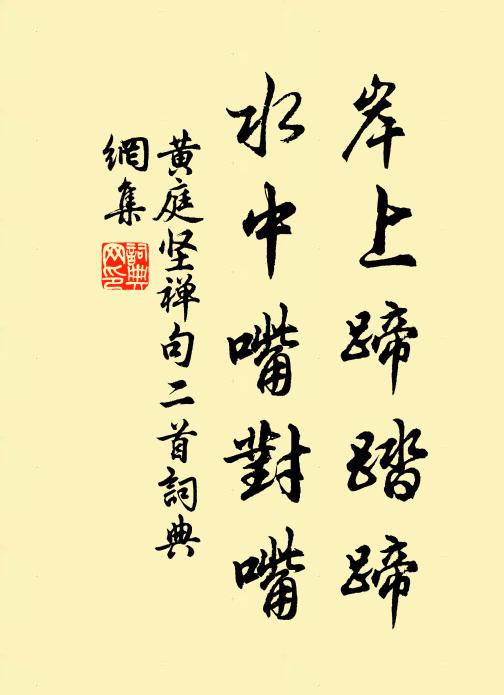 岸上蹄踏蹄
水中嘴對嘴
黄庭坚禅句二首詞典
網集
詞典網印